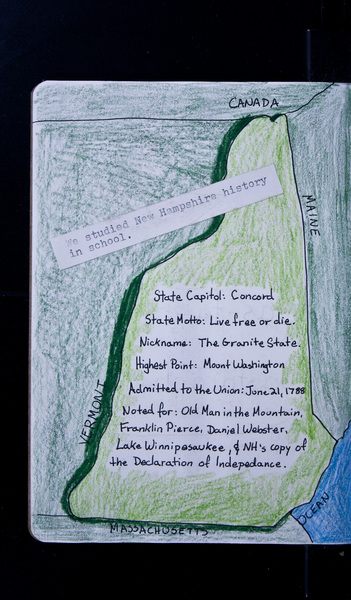 CANADA
MAINE
We studied New Hampshire history
in school.
State Capitol: Concord
State Motto: Live free or die.
Nickname: The Granite State.
Highest Point: Mount Washington
Admitted to the Union: June 21, 1788
Noted for: Old Man in the Mountain,
Franklin Pierce, Daniel Webster,
Lake Winnipesaukee, & NH's copy of
the Declaration of Indepedance.
VERMONT
OCEAN
MASSACHUSETTS